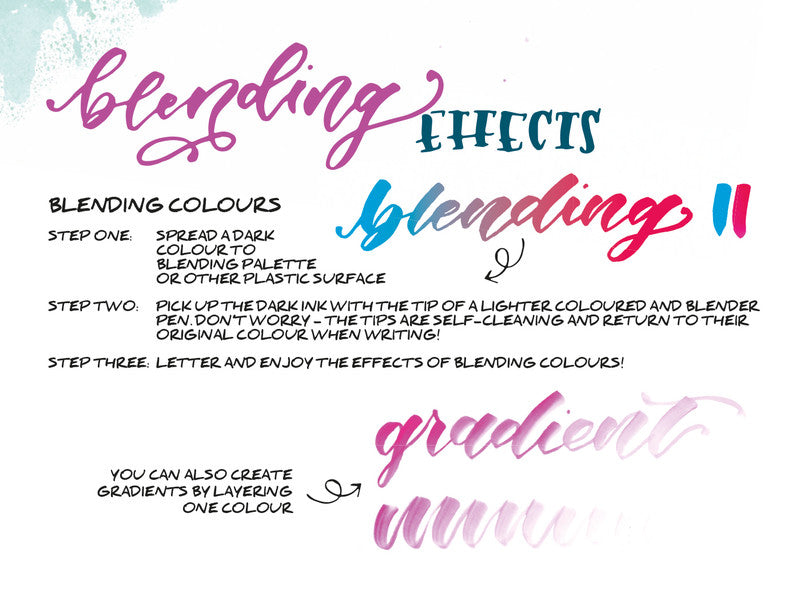 blending EFFECTS
blending
BLENDING COLOURS
STEP ONE: SPREAD A DARK
COLOUR TO
BLENDING PALETTE
OR OTHER PLASTIC SURFACE
STEP TWO: PICK UP THE DARK INK WITH THE TIP OF A LIGHTER COLOURED AND BLENDER
PEN. DON'T WORRY - THE TIPS ARE SELF-CLEANING AND RETURN TO THEIR
ORIGINAL COLOUR WHEN WRITING!
STEP THREE: LETTER AND ENJOY THE EFFECTS OF BLENDING COLOURS!
gradient
YOU CAN ALSO CREATE
GRADIENTS BY LAYERING
ONE COLOUR